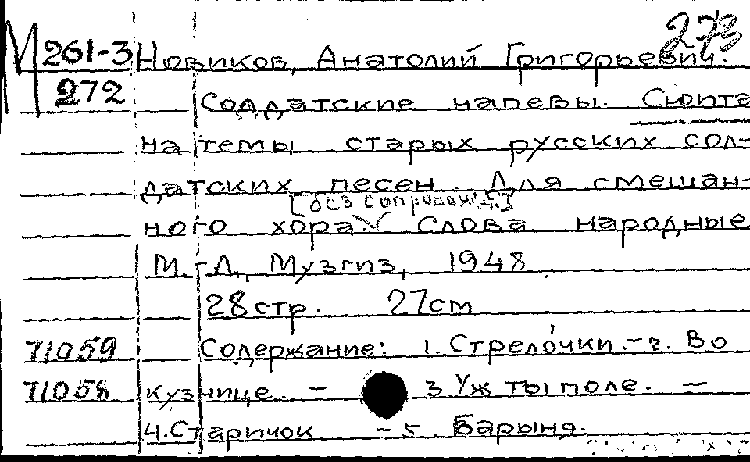 273
М 261-3 Новиков, Анатолий Григорьевич.
272 Солдатские напевы. Сюита
на темы старых русских сол-
датских песен. Для смешан-
[без сопровожд.]
ного хора Слова народные
М.-Л., Музгиз, 1948
28стр. 27см
71059 Содержание: 1. Стрелочки. - 2. Во
71058 кузнице. - 3. Уж ты поле. -
4. Старичок - 5 Барыня.